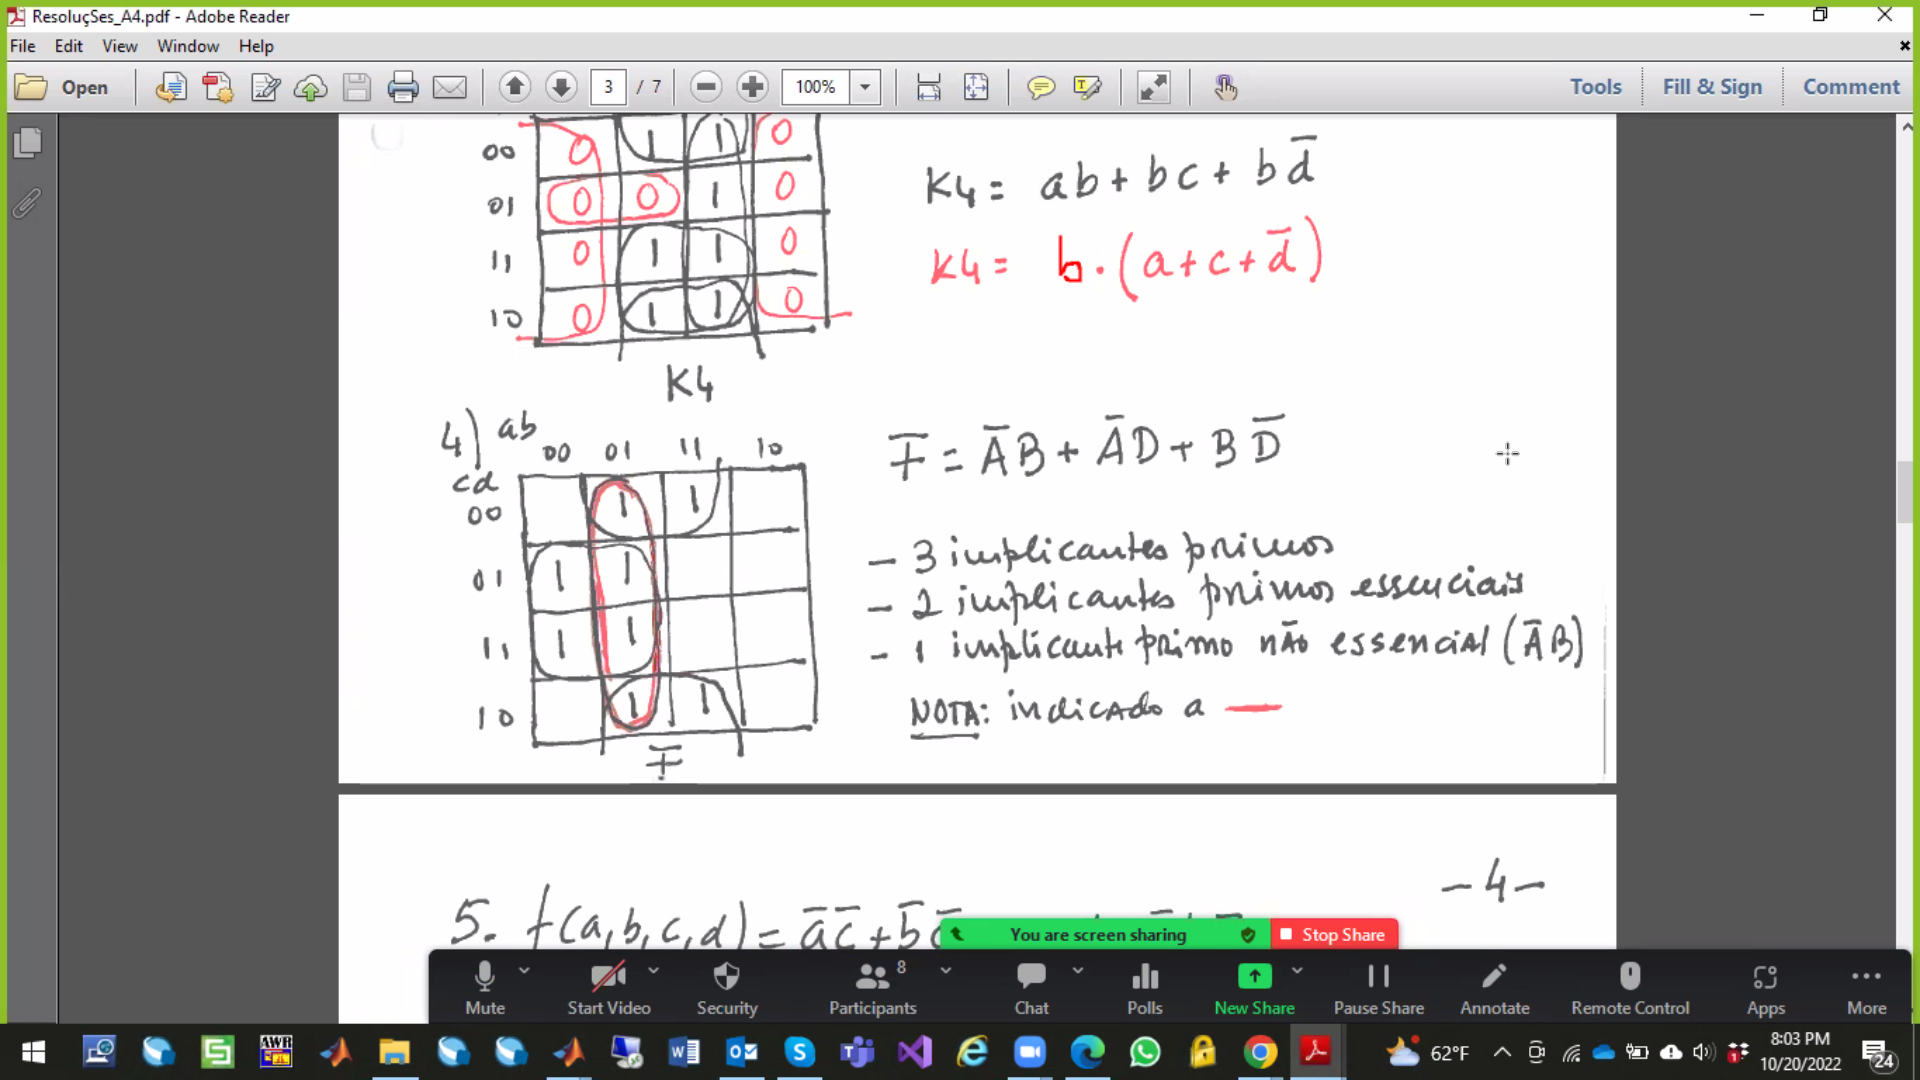 ResoluçSes_A4.pdf - Adobe Reader
File Edit View Window Help
Open 3 / 7 100% Tools Fill & Sign Comment
00 0 1 1 0
01 0 0 1 0
11 0 1 1 0
10 0 1 1 0
K4
K4 = ab + bc + bd̅
K4 = b · (a + c + d̅)
4) ab
00 01 11 10
cd
00 1 1
01 1 1
11 1 1
10 1 1
F
F = A̅B + A̅D + BD̅
- 3 implicantes primos
- 2 implicantes primos essenciais
- 1 implicante primo não essencial (A̅B)
NOTA: indicado a
-4-
5. f(a,b,c,d) = a̅c̅ + b̅
You are screen sharing Stop Share
Mute Start Video Security Participants 8 Chat Polls New Share Pause Share Annotate Remote Control Apps More
AWR
62°F
8:03 PM
10/20/2022
24